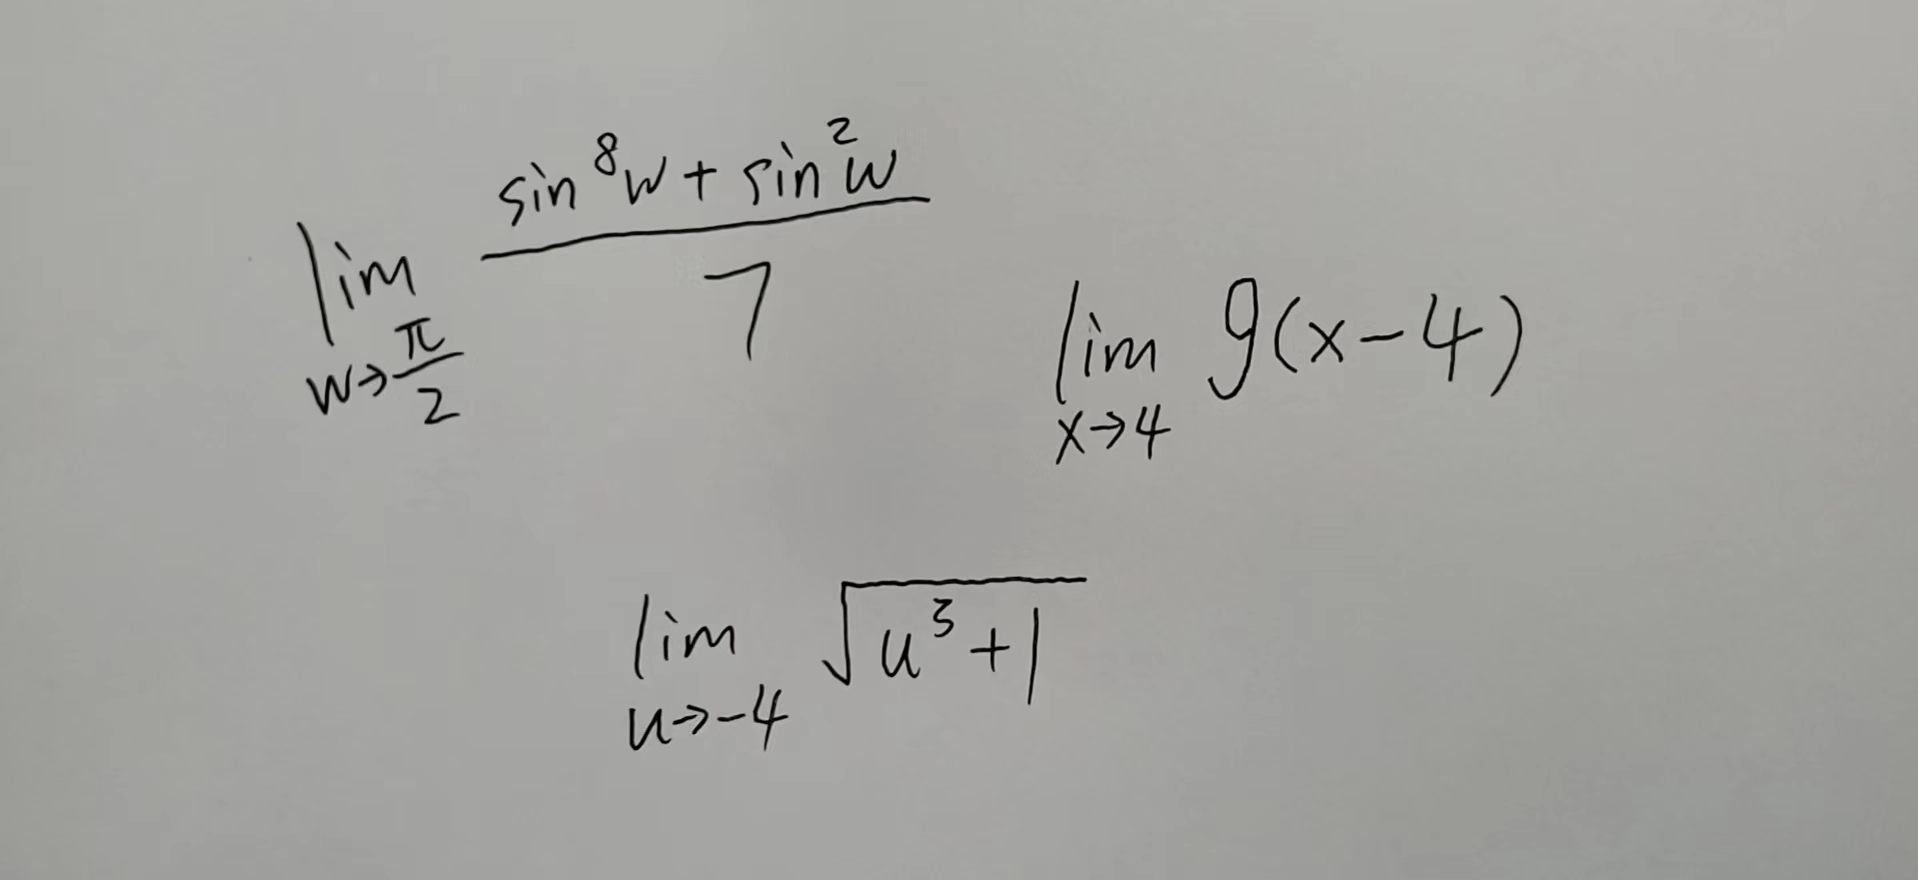 lim w→π/2 (sin⁸w + sin²w)/7
lim x→4 g(x-4)
lim u→-4 √(u³+1)